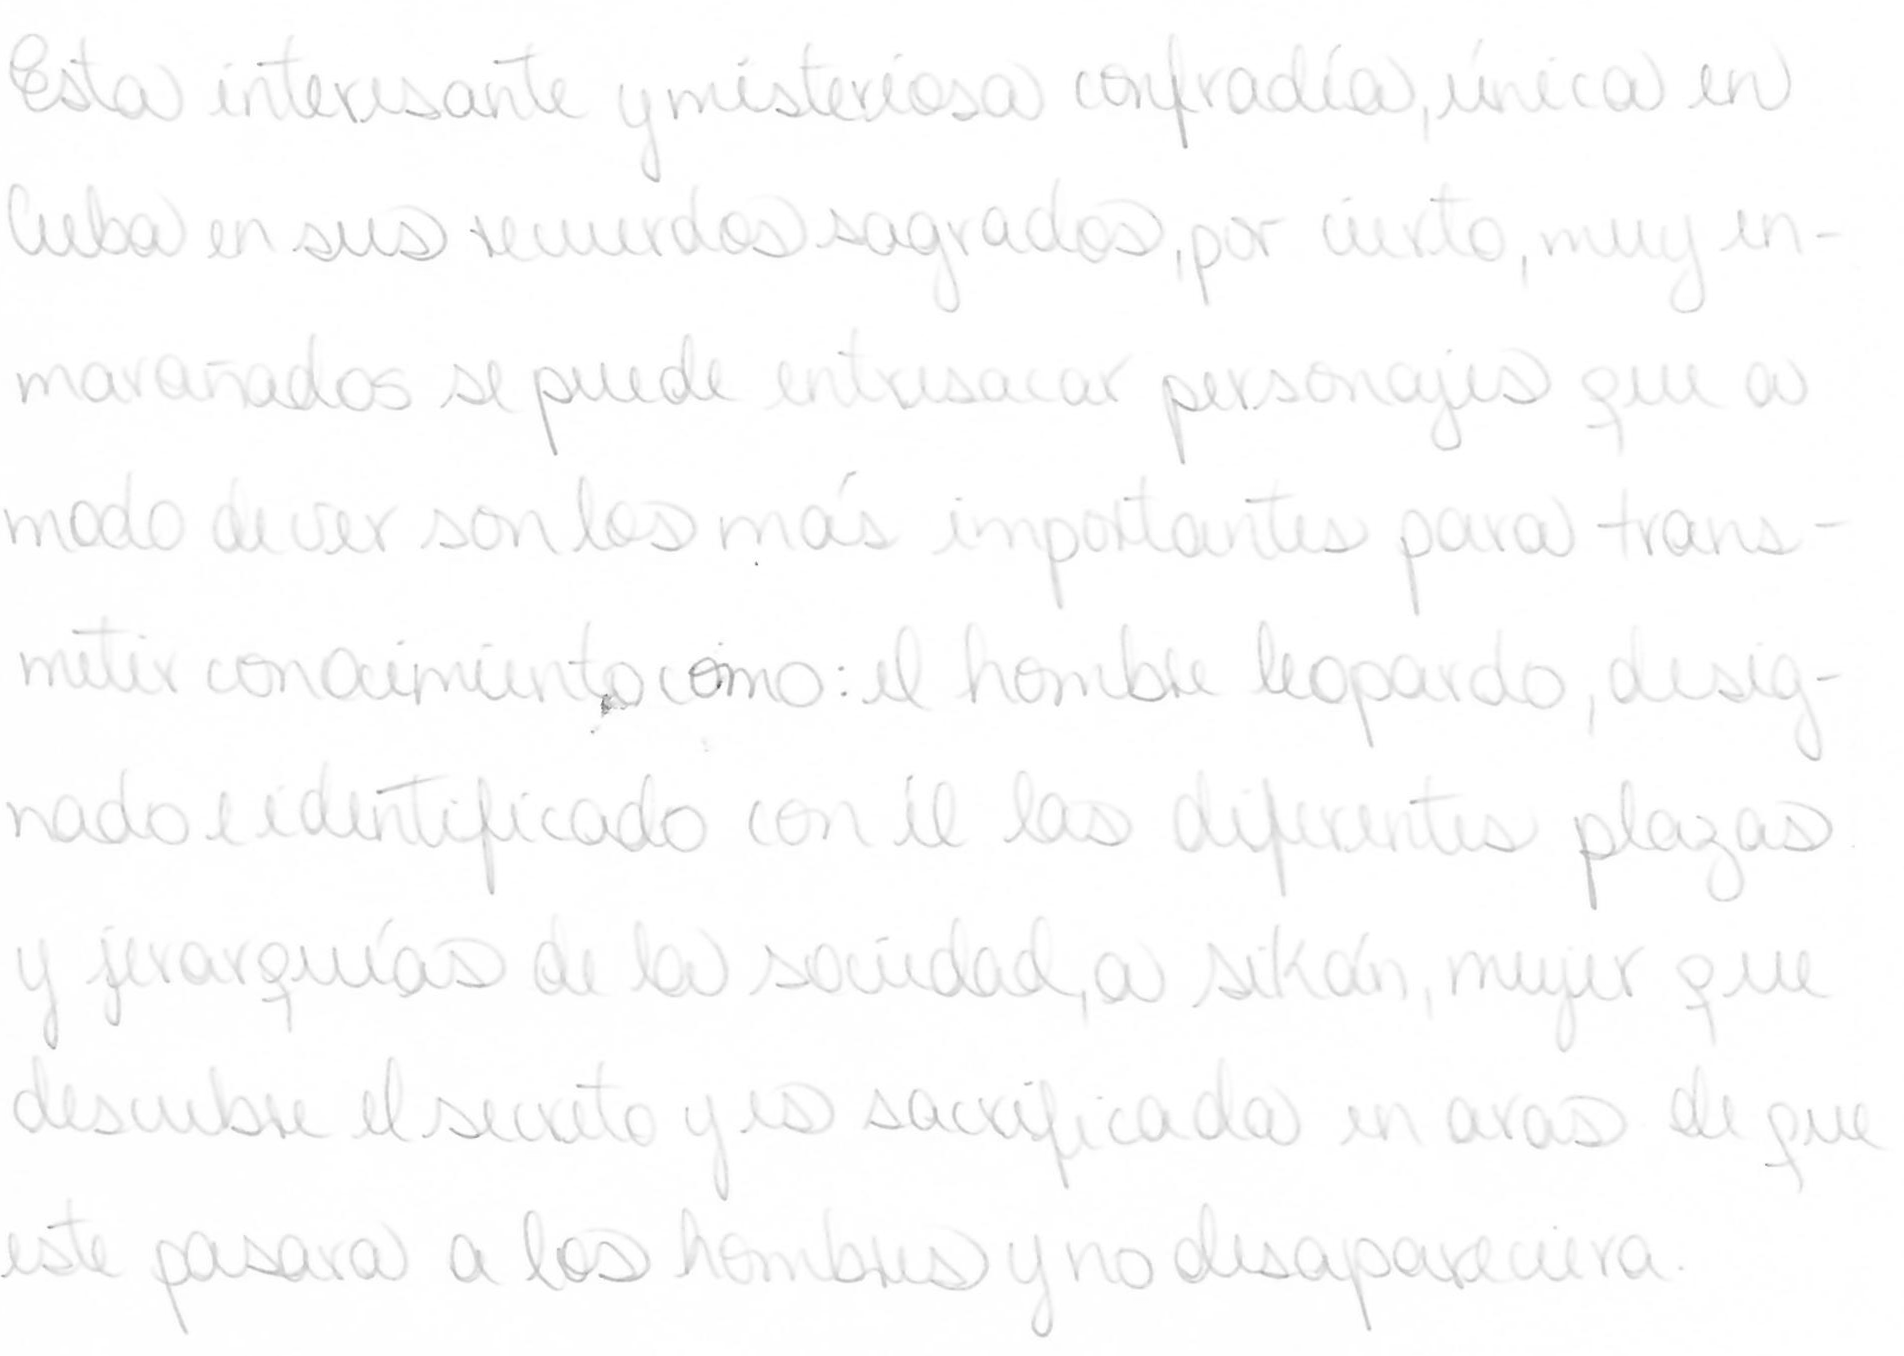 Esta interesante y misteriosa confradía, única en
Cuba en sus recuerdos sagrados, por cierto, muy en-
marañados se puede entresacar personajes que a
modo de ver son los más importantes para trans-
mitir conocimiento como: el hombre leopardo, desig-
nado e identificado con él las diferentes plazas
y jerarquías de la sociedad, a sikán, mujer que
descubre el secreto y es sacrificada en aras de que
este pasara a los hombres y no desapareciera.